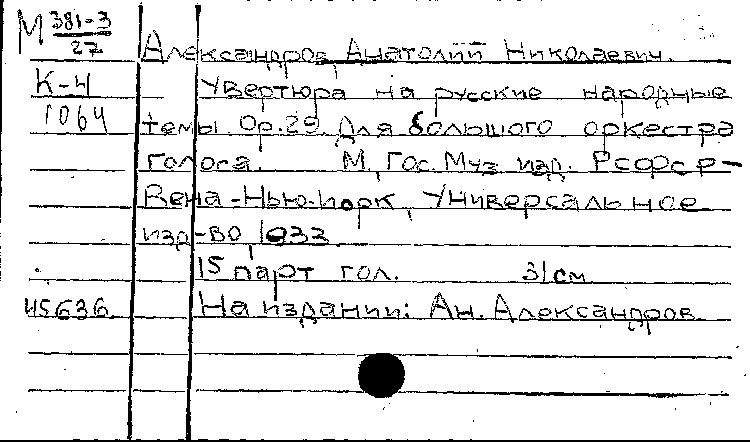 М 381-3
27
Александров, Анатолий Николаевич.
К-4 Увертюра на русские народные
1064 темы Ор.29. Для большого оркестра
Голоса. М., Гос. Муз. изд. РСФСР –
Вена-Нью-йорк, Универсальное
изд-во, 1933.
15 парт гол. 31см
45636. На издании: Ан. Александров.